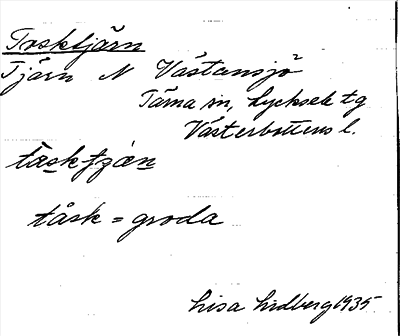 Toskfjärn
Tjärn N Västansjö
Tärna sn, Lycksele tg
Västerbottens l.
tåskfjän
tåsk = groda
Lisa Lidberg 1935